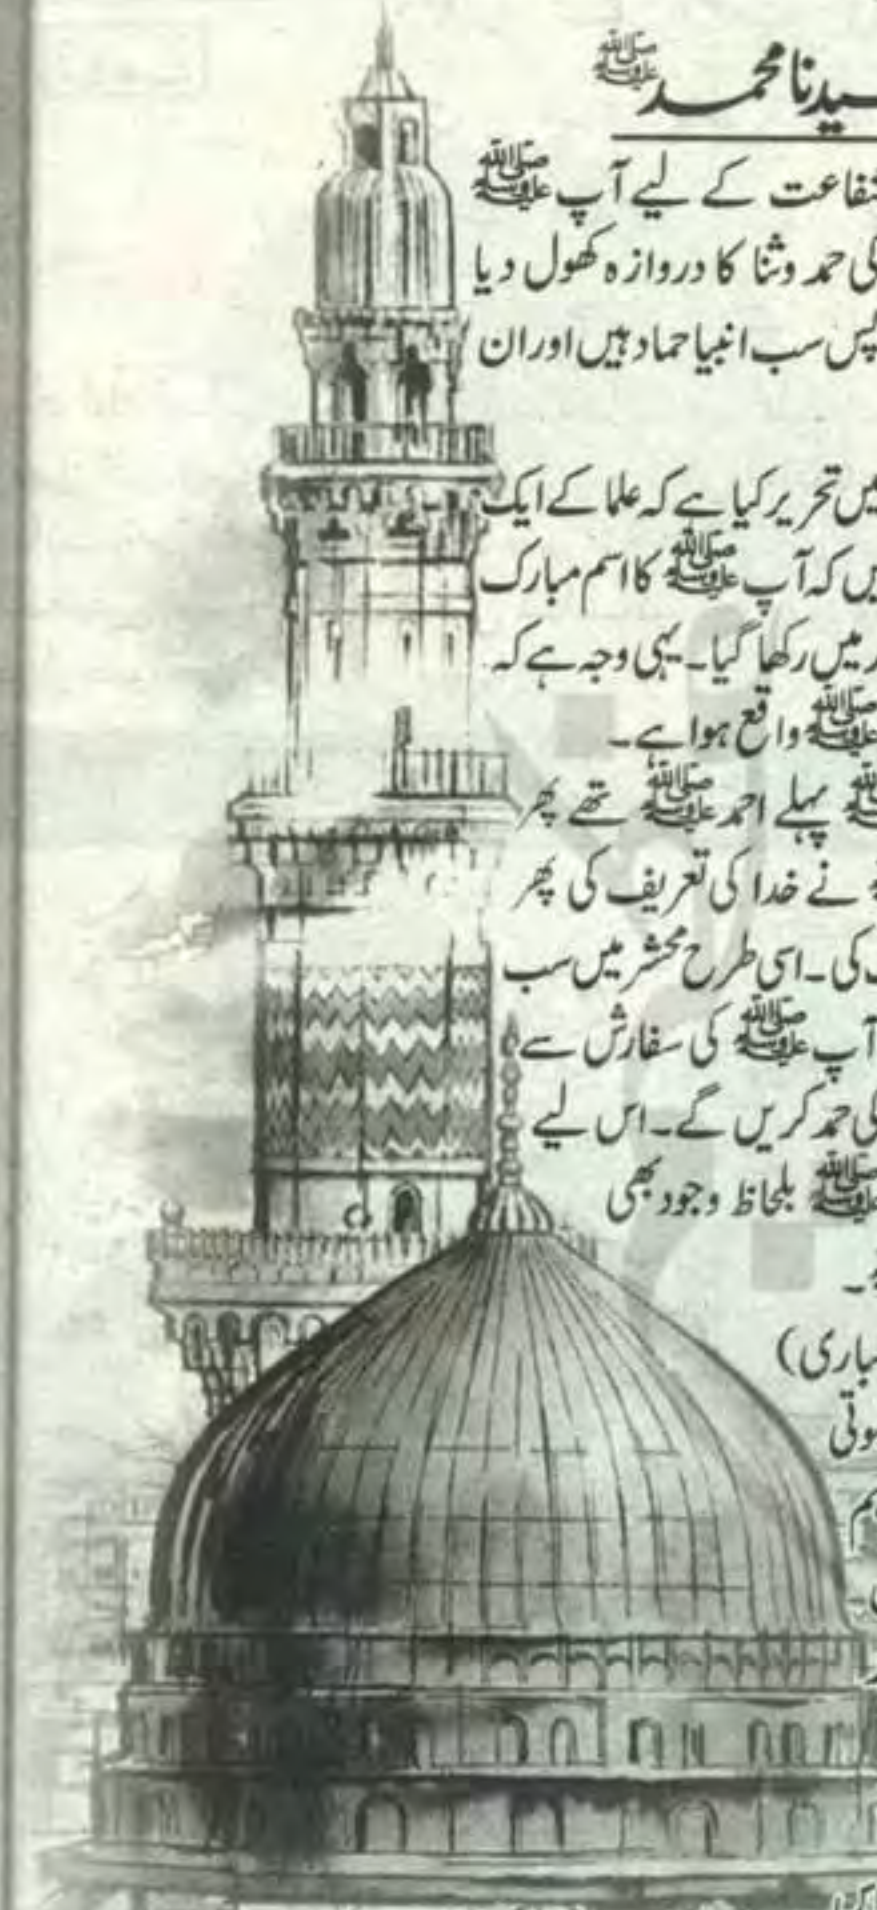 سیدنا محمد ﷺ
شفاعت کے لیے آپ ﷺ
کی حمد و ثنا کا دروازہ کھول دیا
پس سب انبیا حماد ہیں اور ان
میں تحریر کیا ہے کہ علما کے ایک
ہیں کہ آپ ﷺ کا اسم مبارک
میں رکھا گیا۔ یہی وجہ ہے کہ
ﷺ واقع ہوا ہے۔
ﷺ پہلے احمد ﷺ تھے پھر
نے خدا کی تعریف کی پھر
کی۔ اسی طرح محشر میں سب
آپ ﷺ کی سفارش سے
کی حمد کریں گے۔ اس لیے
ﷺ بلحاظ وجود بھی
۔
باری)
ہوتی